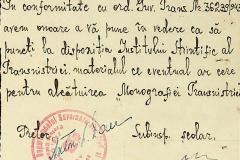 In conformitate cu ord. Guv. Trans Nr. 36239/943
avem onoare a vă pune în vedere ca să
puneți la dispoziția Institului Științific al
Transnistriei, materialul ce eventual ar cere
pentru alcătuirea Monografiei Transnistriei
Pretor
Subinsp. școlar.